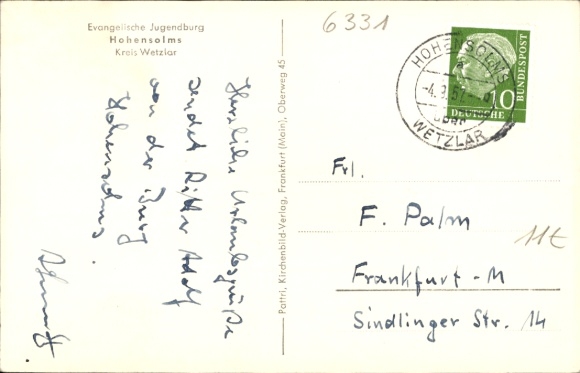 Evangelische Jugendburg
Hohensolms
Kreis Wetzlar
Herzliche Urlaubsgrüße
sendet Ritter Adolf
von der Burg
Hohensolms.
Pattri, Kirchenbild-Verlag, Frankfurt (Main), Oberweg 45
6331
HOHENSOLMS
a
WETZLAR
10
DEUTSCHE
BUNDESPOST
Frl.
F. Palm
11€
Frankfurt-M
Sindlinger Str. 14